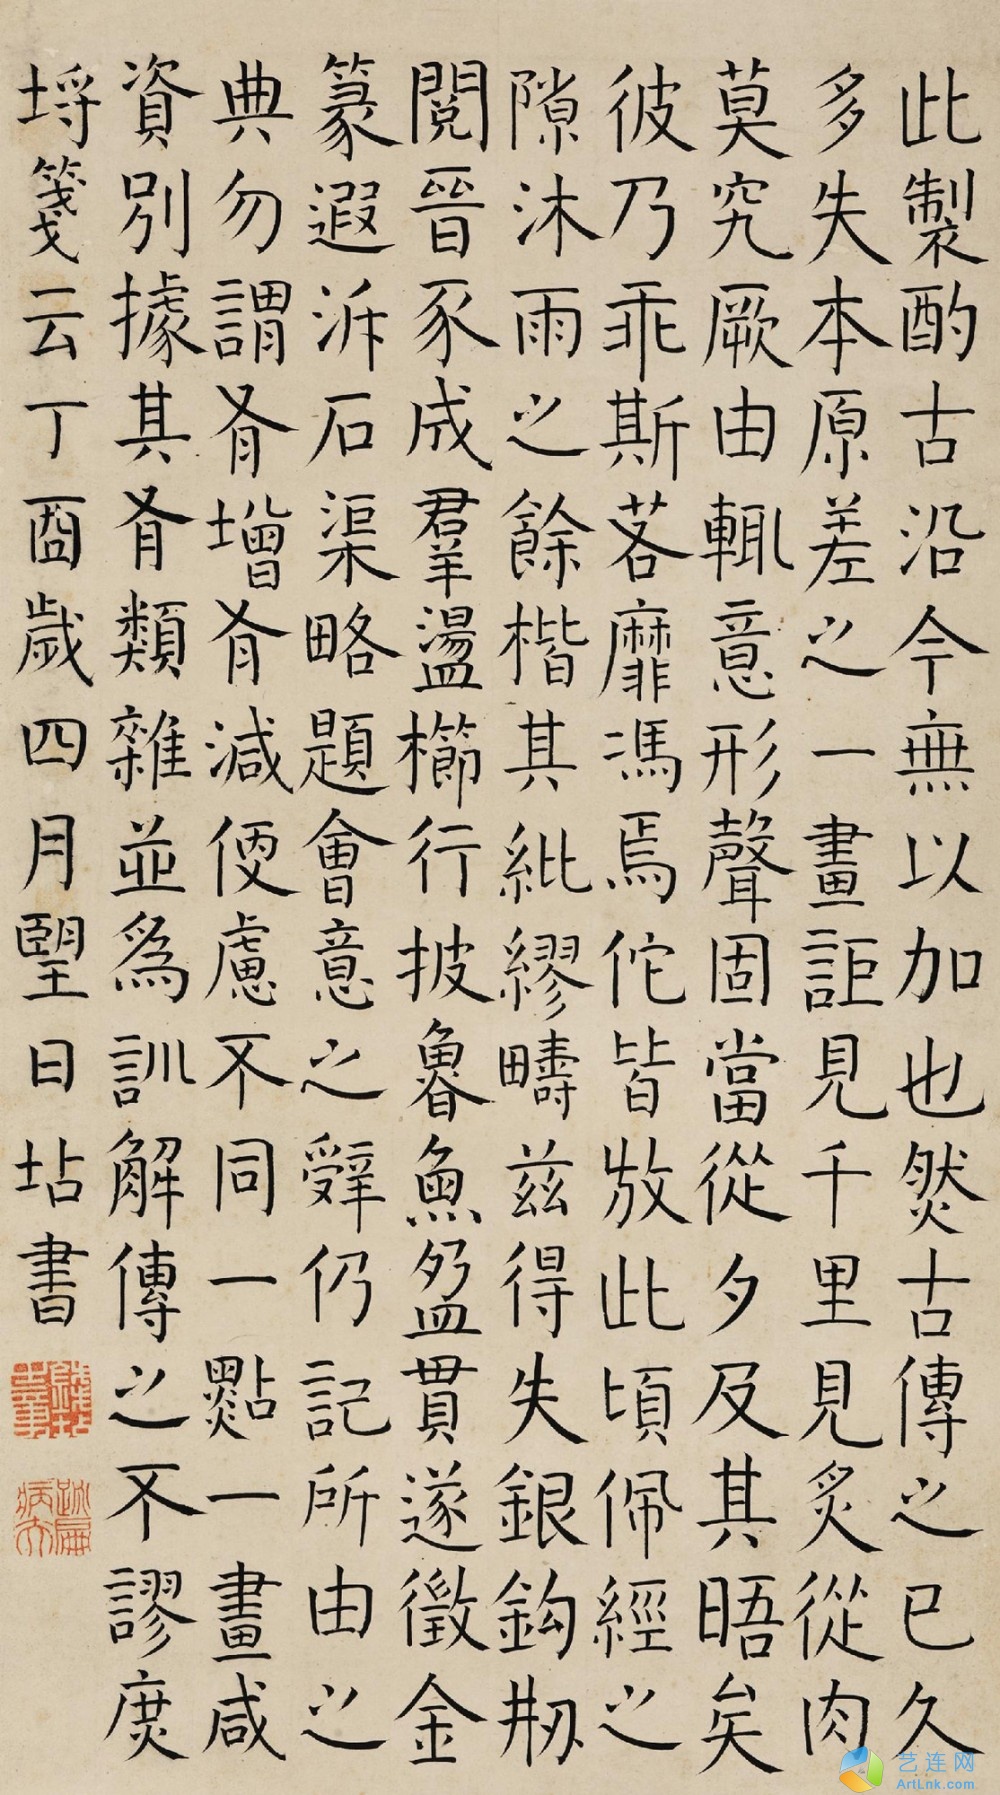 此製酌古沿今無以加也然古傳之已久
多失本原差之一畫詎見千里見炙從肉
莫究厥由輒意形聲固當從夕及其晤矣
彼乃乖斯茖靡馮焉佗皆放此頃佩經之
隙沐雨之餘楷其紕繆疇茲得失銀鈎剏
閱晉豕成羣盪櫛行披魯魚盈貫遂徵金
篆遐泝石渠略題會意之辭仍記所由之
典勿謂肴增肴減便慮不同一點一畫咸
資別據其肴類雜並為訓解傳之不謬庶
埒箋云丁酉歲四月朢日坫書
艺连网
ArtLnk.com